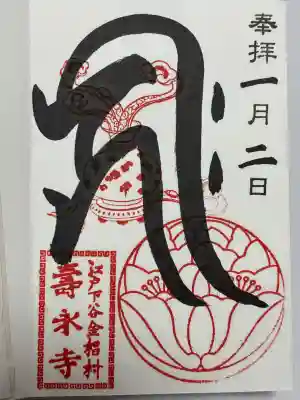 奉拝一月二日
江戸下谷金杉村
壽永寺